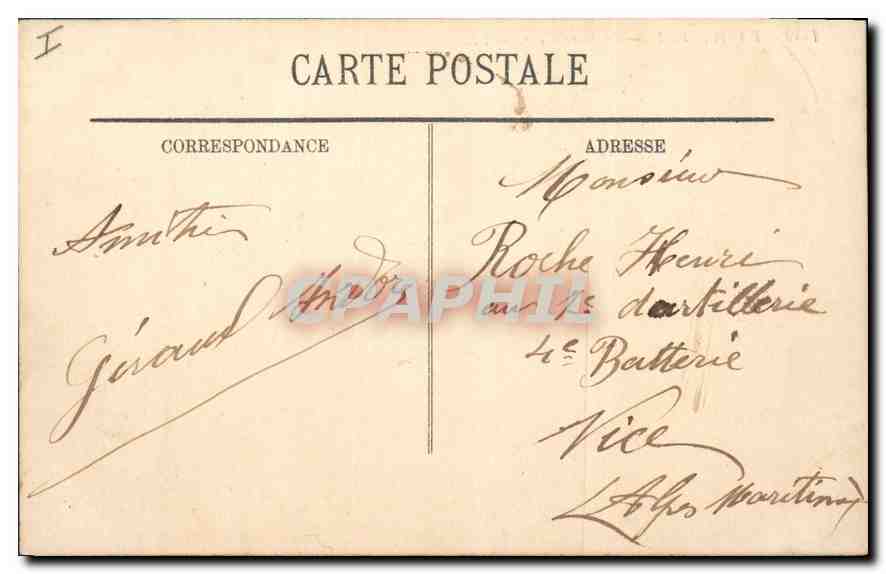 I
CARTE POSTALE
CORRESPONDANCE
Géraud
ADRESSE
Monsieur
Roche Henri
au 7e d'artillerie
4e Batterie
Nice
(Alpes Maritimes)
CPAPHIL